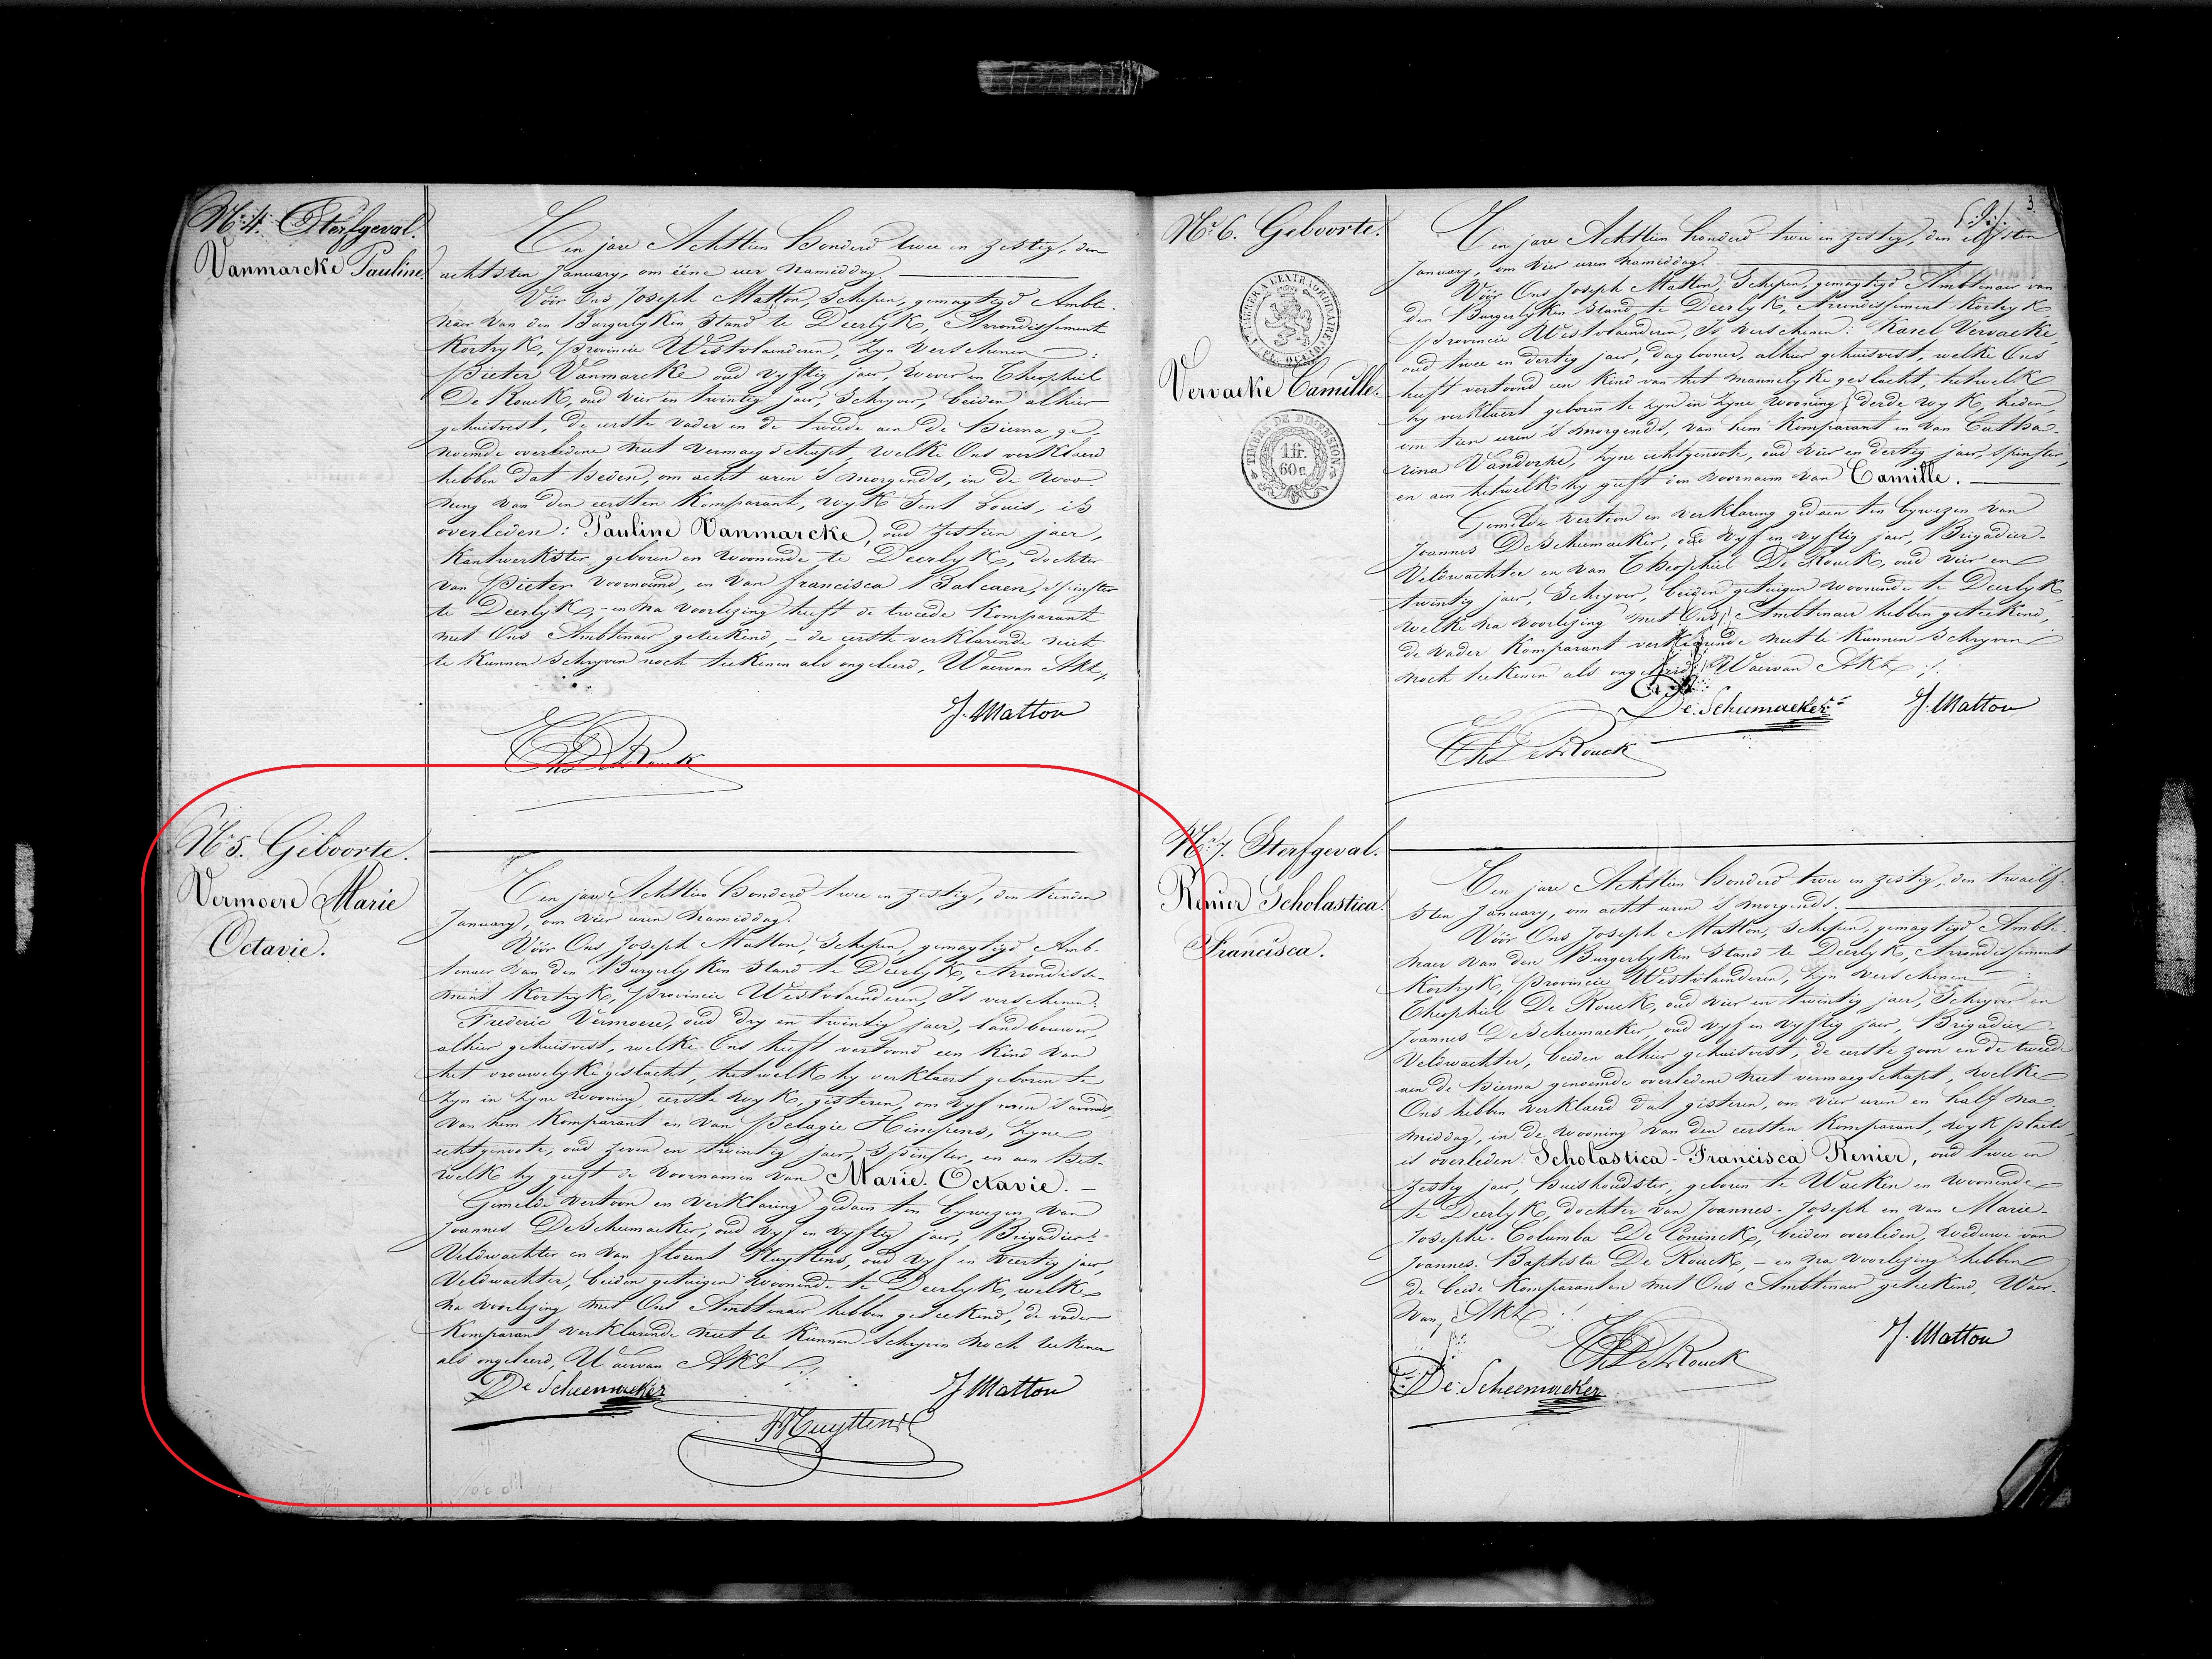 Nr. 4. Sterfgeval.
Vanmarcke Pauline
Ten jare Achttien honderd twee en zestig, den
achtsten January, om ééne uer namiddag.
Vóór Ons, Joseph Matton, Schepen, gemagtigd Ambte-
naer van den Burgerlyken Stand te Deerlyk, Arrondissement
Kortryk, provincie Westvlaenderen, zyn verschenen:
Pieter Vanmarcke oud vyftig jaer, wever en Theophiel
De Rouck, oud vier en twintig jaer, Schryver, beiden alhier
gehuisvest, de eerste vader en de tweede aen de hierna ge-
noemde overledene niet vermaegschapt, welke Ons verklaerd
hebben dat heden, om acht uren 's morgends, in de woo-
ning van den eersten Komparant, wyk Sint Louis, is
overleden: Pauline Vanmarcke, oud zestien jaer,
Kantwerkster, geboren en woonende te Deerlyk, dochter
van Pieter voornoemd, en van francisca Balcaen, spinster
te Deerlyk, - en na voorlezing heeft de tweede Komparant
met Ons Ambtenaer geteekend, - de eerste verklarende niet
te kunnen Schryven noch teekenen als ongeleerd, Waervan Akte,
J. Matton
Th De Rouck
Nr. 5. Geboorte.
Vermoere Marie
Octavie.
Ten jare Achttien honderd twee en zestig, den tienden
January, om vier uren namiddag.
Vóór Ons Joseph Matton, Schepen, gemagtigd Amb-
tenaer van den Burgerlyken Stand te Deerlyk, Arrondisse-
ment Kortryk, provincie Westvlaenderen, Is verschenen:
Frederic Vermoere, oud dry en twintig jaer, landbouwer,
alhier gehuisvest, welke Ons heeft vertoond een kind van
het vrouwelyke geslacht, hetwelk hy verklaert geboren te
zyn in zyne wooning eerste wyk, gisteren, om vyf uren 's avonds
van hem Komparant en van Pelagie Himpens, zyne
echtgenoote, oud zeven en twintig jaer, Spinster, en aen het-
welk hy geeft de voornamen van Marie-Octavie. -
Gemelde vertoon en verklaring gedaen ten bywezen van
Joannes DeScheemaeker, oud vyf en vyftig jaer, Brigadier-
Veldwachter en van florent Huyttens, oud vyf en veertig jaer,
Veldwachter, beiden getuigen woonende te Deerlyk, welke
na voorlezing met Ons Ambtenaer hebben geteekend, de vader
Komparant verklarende niet te kunnen Schryven noch teekenen
als ongeleerd, Waervan Akte
De Scheemaeker
J Matton
F Huyttens
3
Nr. 6. Geboorte.
TIMBRE DE DIMENSION
1 fr.
60 c
Vervaeke Camille
Ten jare Achttien honderd twee en zestig, den elfsten
January, om vier uren namiddag.
Vóór Ons Joseph Matton, Schepen, gemagtigd Ambtenaer van
den Burgerlyken Stand te Deerlyk, Arrondissement Kortryk
provincie Westvlaenderen, Is verschenen: Karel Vervaeke,
oud twee en dertig jaer, daglooner, alhier gehuisvest, welke Ons
heeft vertoond een kind van het mannelyke geslacht, hetwelk
hy verklaert geboren te zyn in zyne wooning, derde wyk, heden,
om tien uren 's morgends, van hem Komparant en van Catha-
rina Vandorpe, zyne echtgenoote, oud vier en dertig jaer, spinster,
en aen hetwelk hy geeft den voornaem van Camille.
Gemelde vertoon en verklaring gedaen ten bywezen van
Joannes DeScheemaeker, oud vyf en vyftig jaer, Brigadier-
Veldwachter en van Theophiel De Rouck, oud vier en
twintig jaer, Schryver, beiden getuigen woonende te Deerlyk,
welke na voorlezing met Ons Ambtenaer hebben geteekend,
de vader Komparant verklarende niet te kunnen Schryven
noch teekenen als ongeleerd, Waervan Akte
De Scheemaeker
J. Matton
Th De Rouck
Nr. 7. Sterfgeval.
Renier Scholastica
Francisca.
Ten jare Achttien honderd twee en zestig, den twaelf-
sten January, om acht uren 's morgends.
Vóór Ons Joseph Matton, Schepen, gemagtigd Ambte-
naer van den Burgerlyken Stand te Deerlyk, Arrondissement
Kortryk, provincie Westvlaenderen, zyn verschenen:
Theophiel De Rouck, oud vier en twintig jaer, Schryver en
Joannes DeScheemaeker, oud vyf en vyftig jaer, Brigadier-
Veldwachter, beiden alhier gehuisvest, de eerste zoon en de tweede
aen de hierna genoemde overledene niet vermaegschapt, welke
Ons hebben verklaerd dat gisteren, om vier uren en half na-
middag, in de wooning van den eersten Komparant, wyk plaets,
is overleden: Scholastica-Francisca Renier, oud twee en
zestig jaer, huishoudster, geboren te Waeken en woonende
te Deerlyk, dochter van Joannes-Joseph en van Marie-
Josephe-Columba De Coninck, beiden overleden, weduwe van
Joannes-Baptista De Rouck, - en na voorlezing hebben
de beide Komparanten met Ons Ambtenaer geteekend, Waer-
van Akte
Th De Rouck
J. Matton
De Scheemaeker